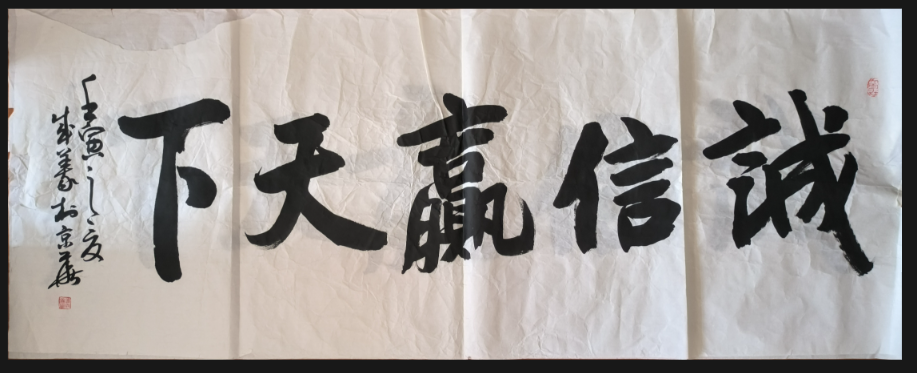 誠信贏天下
壬寅之夏
成義於京華